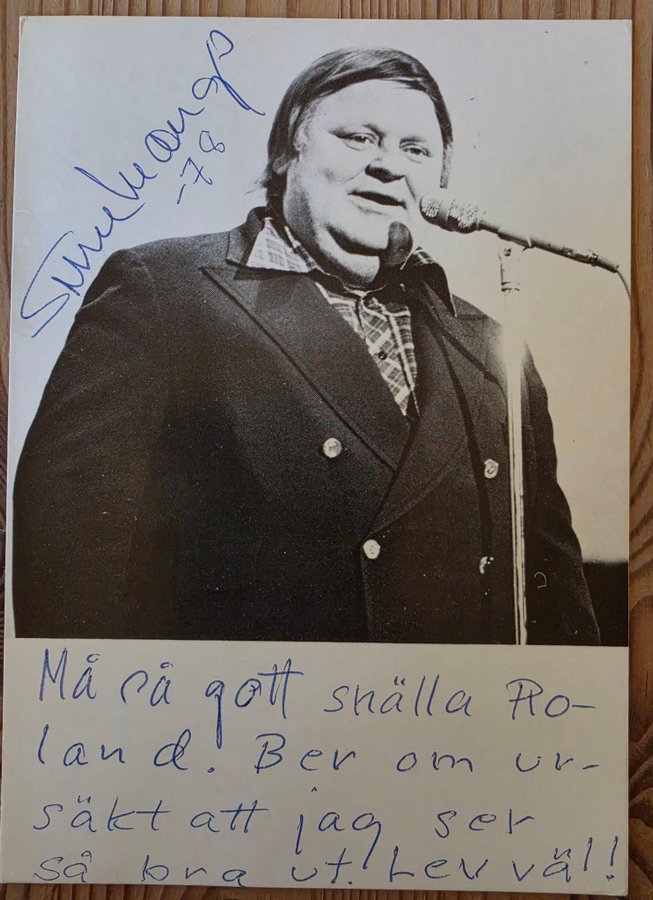 -78
Må så gott snälla Ro-
land. Ber om ur-
säkt att jag ser
så bra ut. Lev väl!